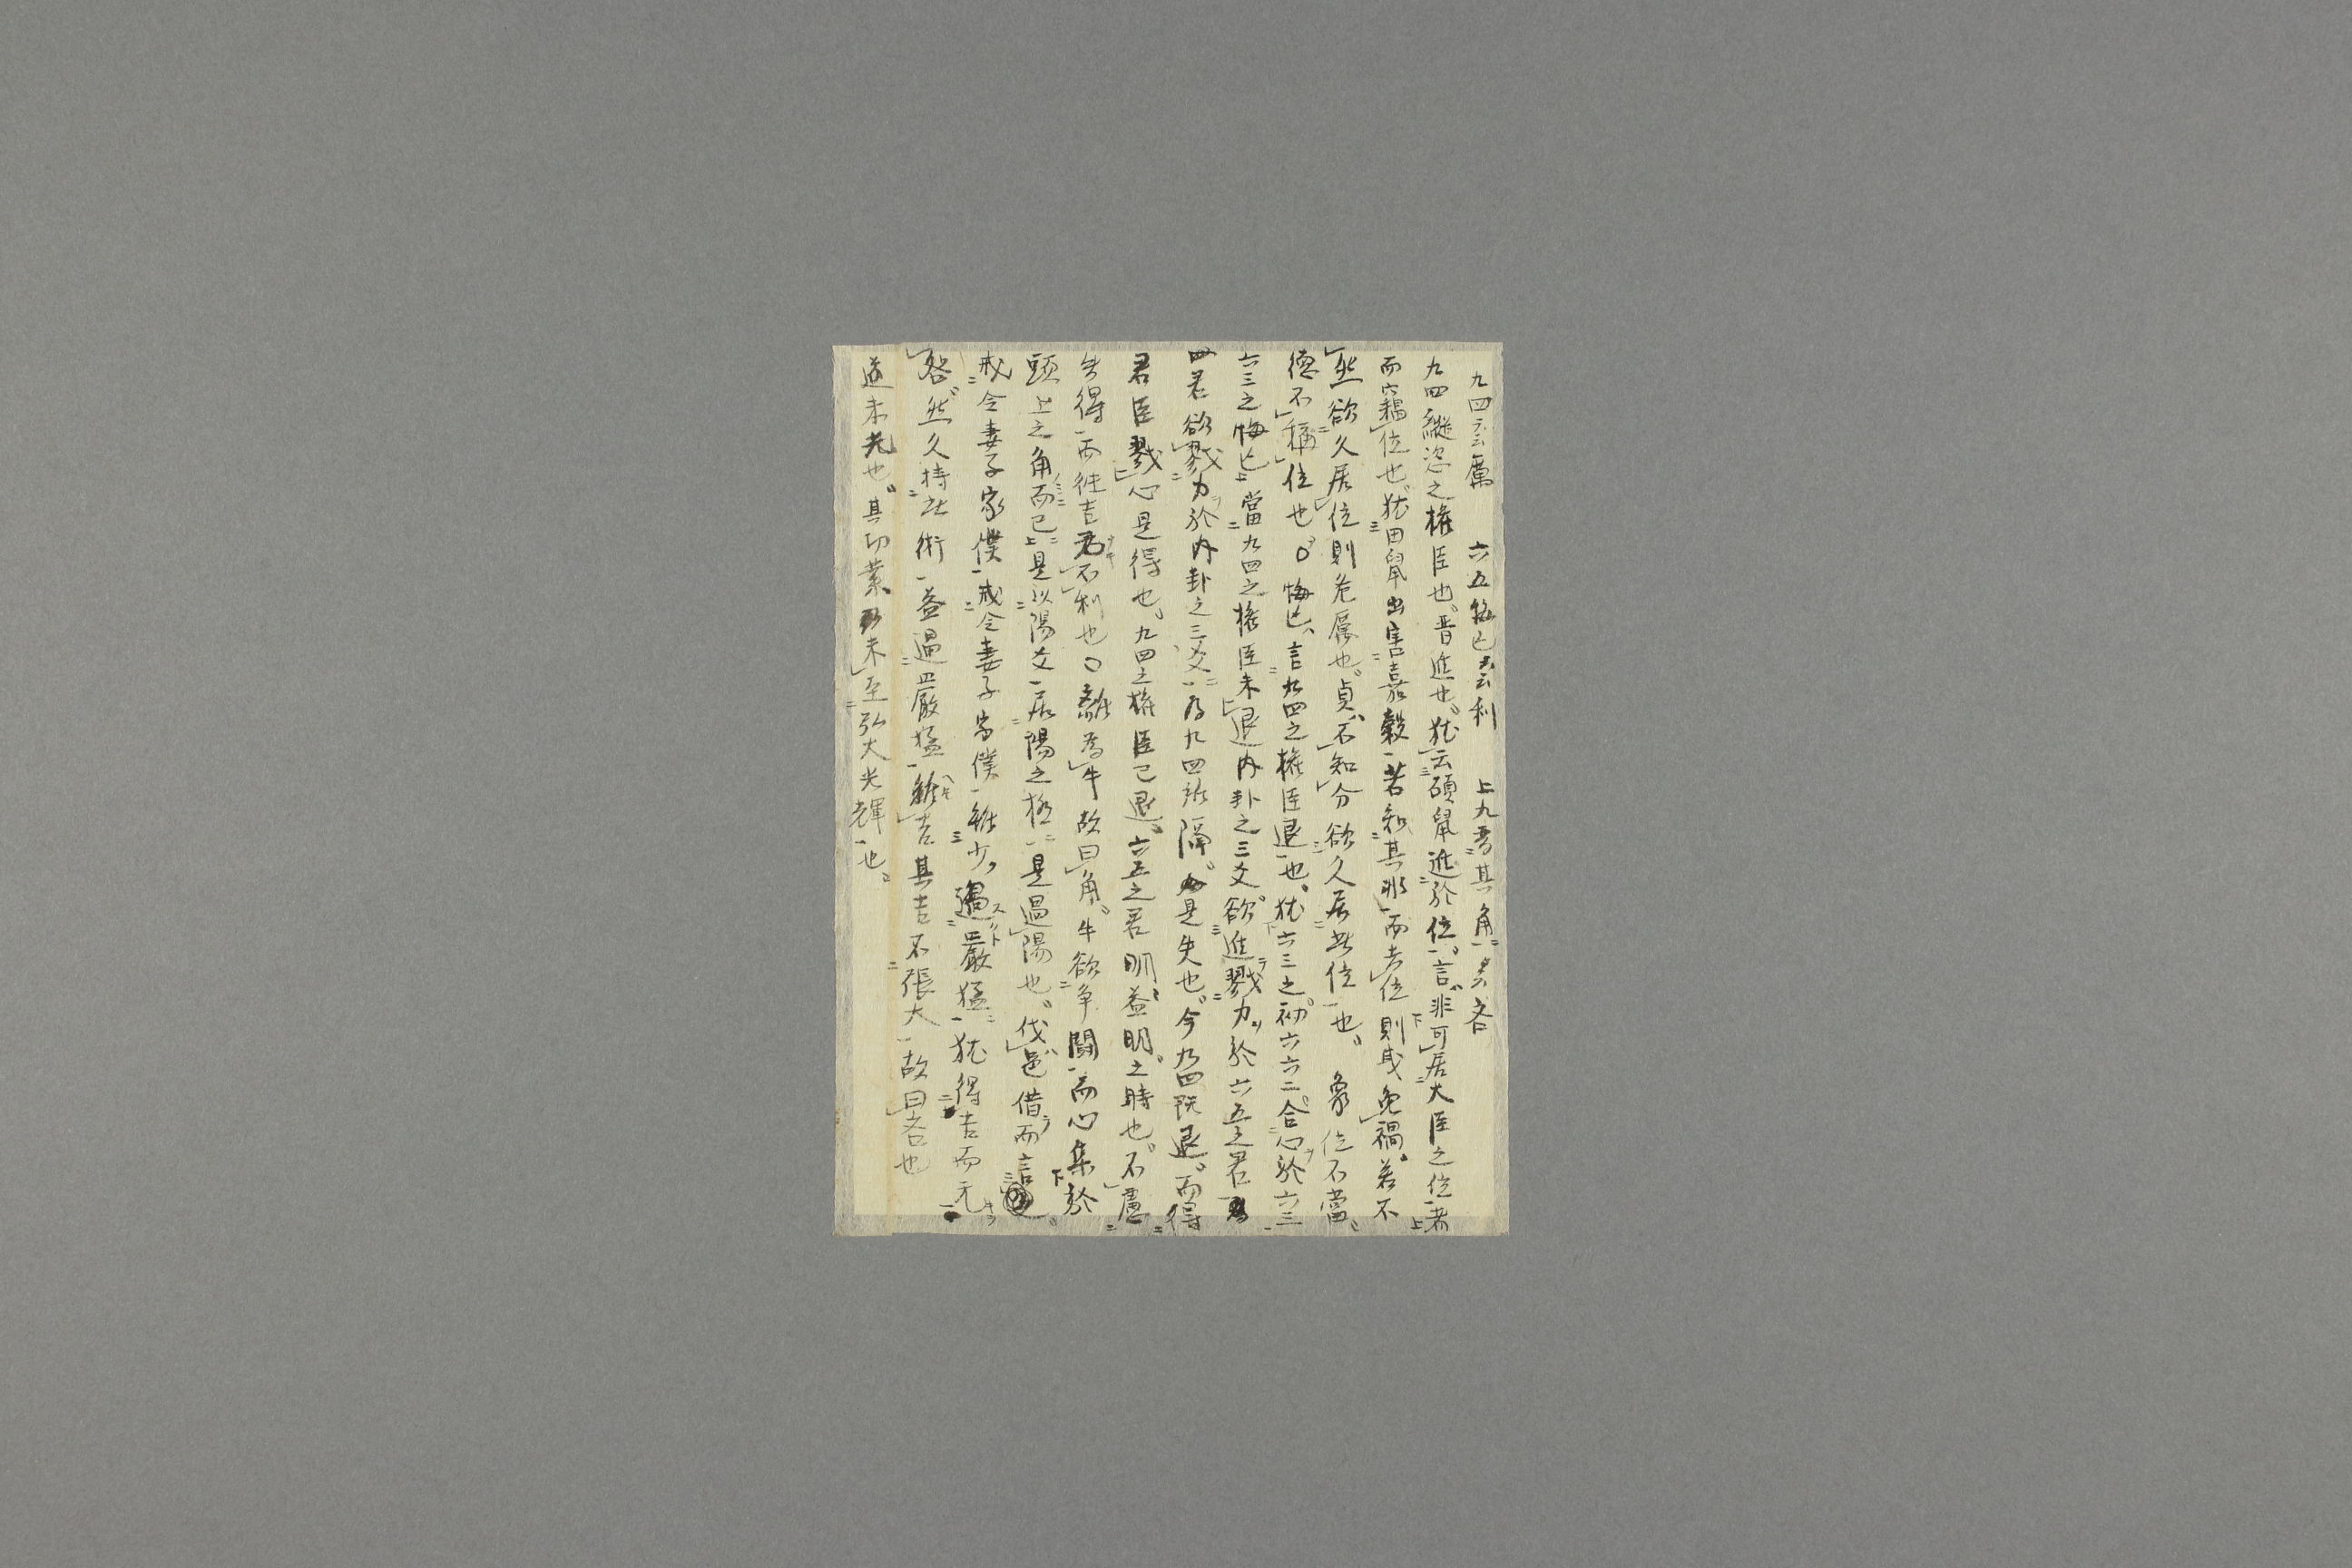 九四云云厲 六五悔亡云云利 上九晋其角云云吝
九四縱恣之權臣也晋進也猶云碩鼠進於位言非可居大臣之位者
而竊位也猶田鼠出害嘉穀若知其非而去位則或免禍若不
然欲久居位則危厲也貞不知分欲久居此位也 象位不當
德不稱位也〇悔亡言九四之權臣退也猶六三之初六六二合心於六三
六三之悔亡當九四之權臣未退内卦之三爻欲進戮力於六五之君
君欲戮力於内卦之三爻為九四所隔是失也今九四既退而得
君臣戮心是得也九四之權臣已退六五之君明益明之時也不慮
失得而往吉无不利也〇離為牛故曰角牛欲争闘而心集於
頭上之角而已是以陽爻居陽之極是過陽也伐邑借而言
戒令妻子家僕戒令妻子家僕雖少過嚴猛猶得吉而无
咎然久持此術益過嚴猛雖吉其吉不張大故曰吝也
道未光也其功業未至弘大光輝也